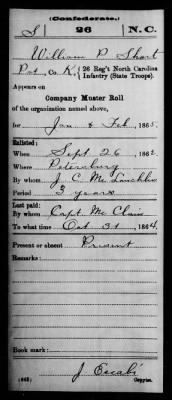 (Confederate.)
S 26 N.C.
William P. Short
Pvt., Co. K, 26 Reg't North Carolina
Infantry (State Troops).
Appears on
Company Muster Roll
of the organization named above,
for Jan & Feb, 1865.
Enlisted:
When Sept 26, 1862.
Where Petersburg
By whom J. C. McLauchlin
Period 3 years
Last paid:
By whom Capt. McClain
To what time Oct 31, 1864.
Present or absent Present
Remarks:
Book mark:
J. Escabi
(642) Copyist.